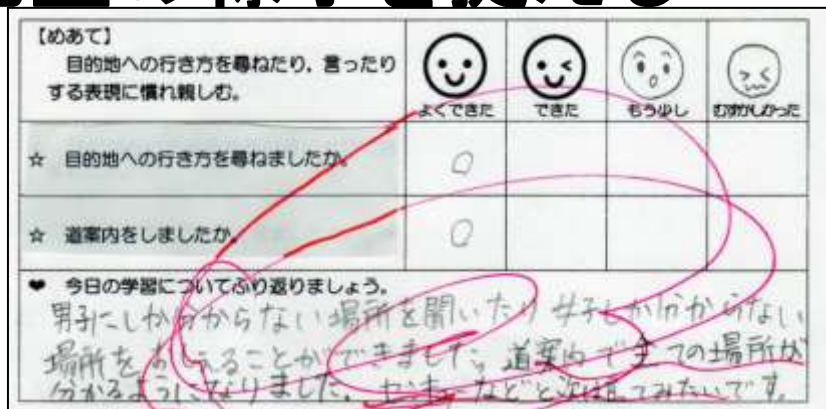 の様子を捉える
【めあて】
目的地への行き方を尋ねたり、言ったり
する表現に慣れ親しむ。
よくできた できた もう少し むずかしかった
☆ 目的地への行き方を尋ねましたか。
☆ 道案内をしましたか。
♥ 今日の学習についてふり返りましょう。
男子にしか分からない場所を聞いたり女子しか分からない
場所をおしえることができました。道案内で全ての場所が
分かるようになりました。などと次は てみたいです。